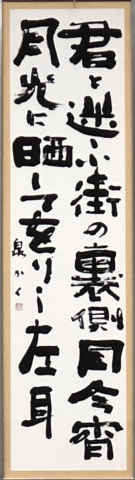 君と逃ふ街の裏側同今宵
月光に晒してをりし左耳
泉かく